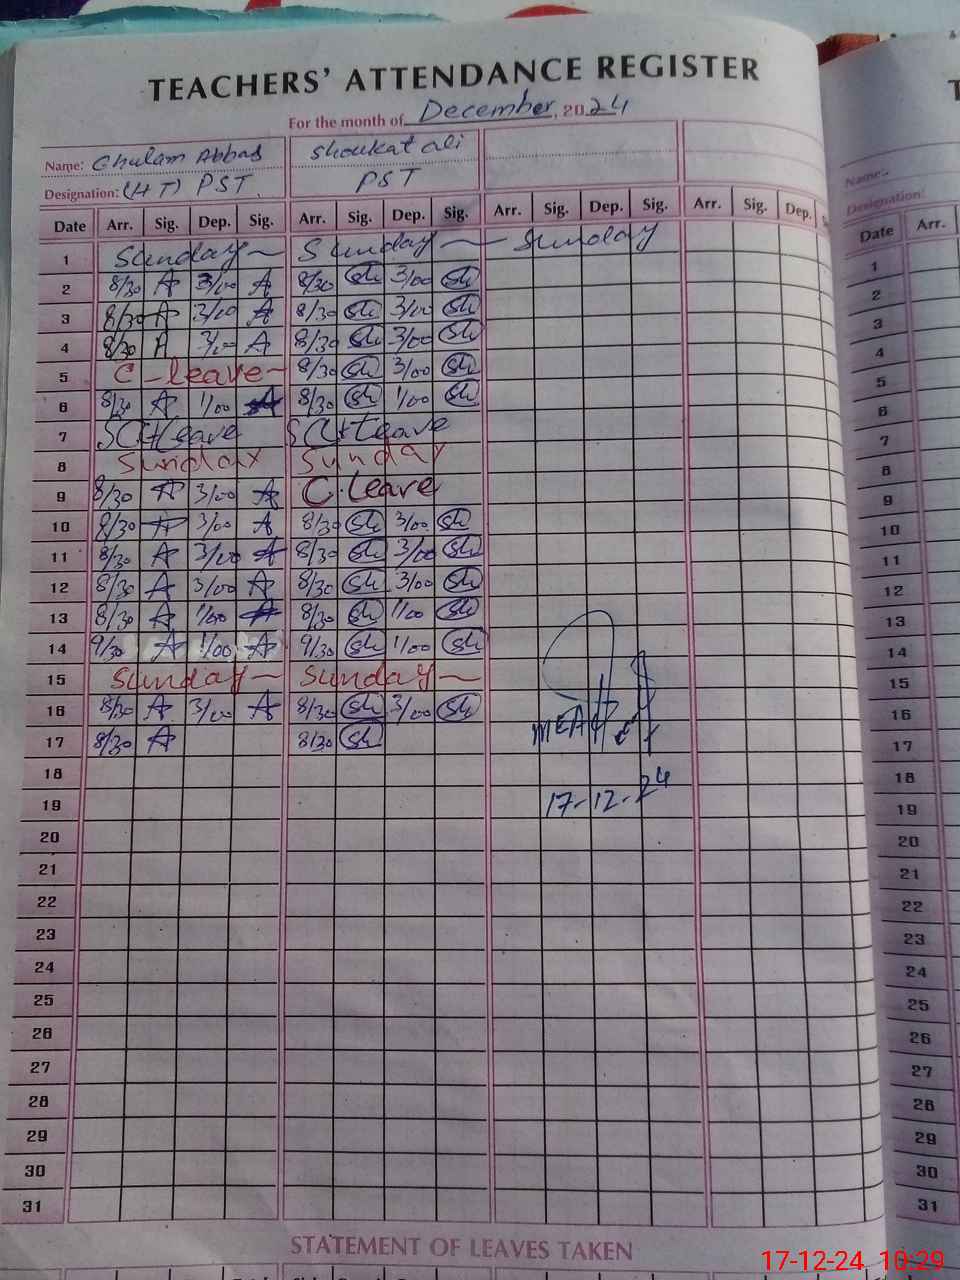 TEACHERS' ATTENDANCE REGISTER
For the month of December, 2024
Name: Ghulam Abbas Shoukat ali
Designation: (HT) PST PST
Date Arr. Sig. Dep. Sig. Arr. Sig. Dep. Sig. Arr. Sig. Dep. Sig. Arr. Sig. Dep.
1 Sunday Sunday Sunday
2 8/30 A 3/00 A 8/30 Sh 3/00 Sh
3 8/30 A 3/00 A 8/30 Sh 3/00 Sh
4 8/30 A 3/00 A 8/30 Sh 3/00 Sh
5 C-leave 8/30 Sh 3/00 Sh
6 8/30 A 1/00 A 8/30 Sh 1/00 Sh
7 leave leave
8 Sunday Sunday
9 8/30 A 3/00 A C.leave
10 8/30 A 3/00 A 8/30 Sh 3/00 Sh
11 8/30 A 3/00 A 8/30 Sh 3/00 Sh
12 8/30 A 3/00 A 8/30 Sh 3/00 Sh
13 8/30 A 1/00 A 8/30 Sh 1/00 Sh
14 9/30 A 1/00 A 9/30 Sh 1/00 Sh
15 Sunday Sunday
16 8/30 A 3/00 A 8/30 Sh 3/00 Sh
17 8/30 A 8/30 Sh
MEA
18
17-12-24
19
20
21
22
23
24
25
26
27
28
29
30
31
STATEMENT OF LEAVES TAKEN
Name:
Designation:
Date Arr.
1
2
3
4
5
6
7
8
9
10
11
12
13
14
15
16
17
18
19
20
21
22
23
24
25
26
27
28
29
30
31
17-12-24 10:29